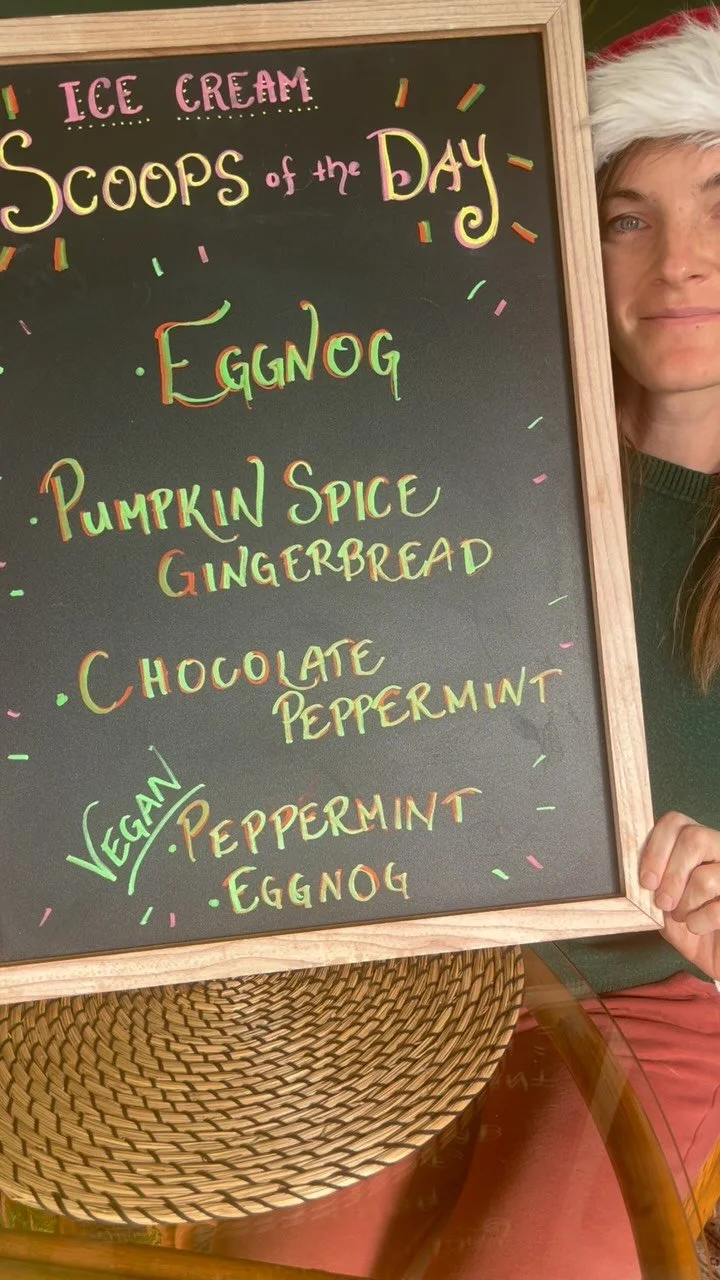 ICE CREAM
SCOOPS of the DAY
· EGGNOG
· PUMPKIN SPICE
GINGERBREAD
· CHOCOLATE
PEPPERMINT
VEGAN
· PEPPERMINT
· EGGNOG